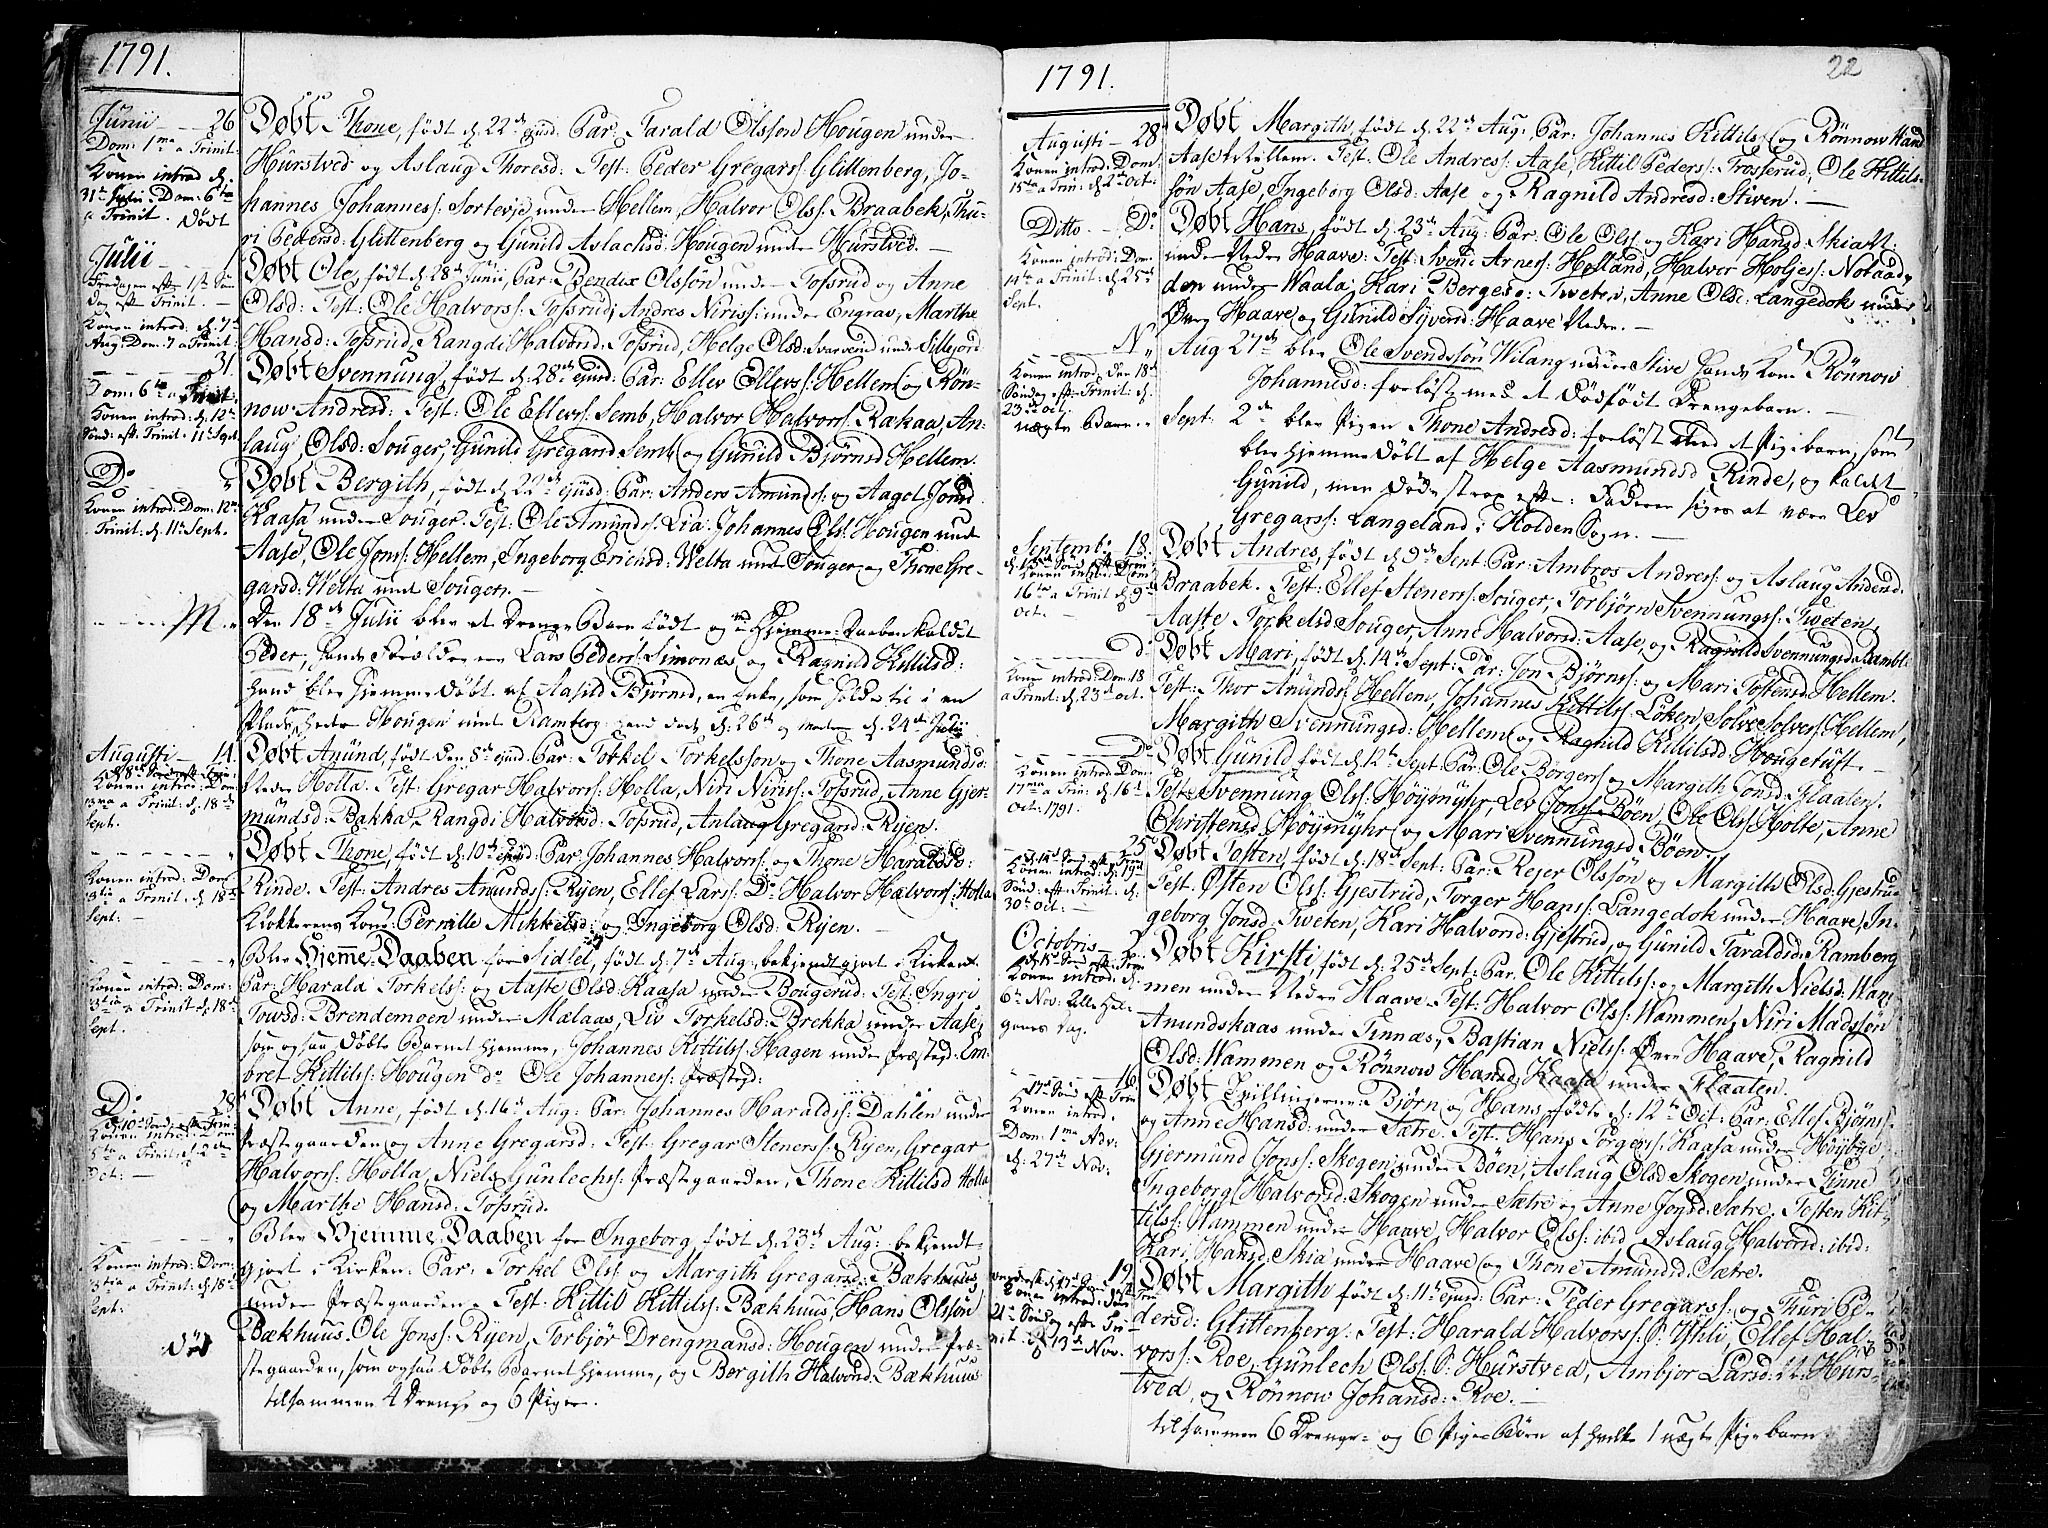 1791.
Junii 26
Dom: 1ma a Trinit.
Konen introd d.
31te Julii Dom: 6te
a Trinit. Død
Døbt Thone, født d. 22de ejusd: Par: Tarald Olssøn Hougen under
Hurstved og Aslaug Thoresd: Test: Peder Gregarss: Glittenberg, Jo-
hannes Johanness: Sortevje under Hellem, Halvor Olss: Braabek, Thu-
ri Pedersd: Glittenberg og Gunild Aslachsd: Hougen under Hurstved.
Julii 1
Fredagen efter 1ste Søn
dag efter Trinit.
Konen introd: d. 7de
Aug: Dom: 7 a Trinit
Døbt Ole, født d. 28de Junii, Par: Bendix Olssøn under Fossrud og Anne
Olsd: Test: Ole Halvorss: Fossrud, Andres Niriss: under Engrav, Marthe
Hansd: Fossrud, Rangdi Halvorsd: Fossrud, Helge Olsd: Svarvend under Sillejord
31.
Dom: 6te a Trinit.
Konen introd: d. 12te
Sønd: eft: Trinit. 11te Sept
Døbt Svennung, født d. 28de ejusd: Par: Ellev Ellevss: Hellem og Røn-
now Andresd: Test: Ole Ellevss: Semb, Halvor Halvorss: Rækaa, An-
laug Olsd: Souger, Gunild Gregarsd Semb, og Gunild Bjørnsd Hellem.
Do
Konen introd: Dom: 12te
Trinit. d. 11te Sept.
Døbt Bergith, født d. 22de ejusd: Par: Anders Amunds: og Aagot Jonsd
Kaasa under Souger. Test: Ole Amundss: Lia, Johannes Olss: Hougen und
Aase, Ole Jonss: Hellem, Ingeborg Erichsd: Welta und Souger, og Thone Gre-
garsd: Welta und Souger.
M.
Den 18de Julii blev et Drenge Barn født og ved Hjemme-Daaben kaldet
Peder, hands Forældre ere Lars Peders: Simonæs, og Ragnild Kittilsd:
hand blev hjemme døbt af Aasild Bjørnsd, en Enke, som holder til i en
Plads, heder Hougen und Ramberg: hand døde d. 26de og Moderen d. 24de Julii
Augusti 14.
Konen introd: Dom:
13na a Trinit: d. 18de
Sept.
Døbt Amund, født den 8de ejusd: Par: Torkel Torkelsson og Thone Aasmundsd:
Nedre Holla. Test: Gregar Halvorss: Holla, Niri Niriss: Fossrud, Anne Gjer-
mundsd: Bakka, Rangdi Halvorsd: Fossrud, Anlaug Gregarsd: Rijen.
Konen introd: Dom
3tia a Trinit. d. 18de
Sept:
Døbt Thone, født d. 10de ejusd: Par: Johannes Halvorss: og Thone Haraldsd:
Rinde. Test: Andres Amunds: Rijen, Ellef Larss: Do Halvor Halvorss: Holla
Klokkerens Kone Pernille Mikkelsd: og Ingeborg Olsd: Rijen.
Konen introd: Dom:
3tia a Trinit d. 18de
Sept:
Blev Hjemme-Daaben for Sidsel, født d. 7de Aug: bekjendtgjort i Kirken.
Par: Harald Torkelss: og Aaste Olsd: Kaasa under Bougerud: Test: Ingri
Towsd: Brendemoen under Mælaas, Liv Torkelsd: Brekka under Aase,
som ogsaa døbte Barnet hjemme, Johannes Kittilss: Hagen under Præstegd: Em-
bret Kittilss: Hougen do Ole Johanness: Præstegd:
Do 28
Konen introd: Dom
5tia a Trinit: d. 2den
Oct:
Døbt Anne, født d. 16de Aug: Par: Johannes Haraldss: Dahlen under
Præstegaarden og Anne Gregarsd: Test: Gregar Steners: Rijen, Gregar
Halvorss: Holla, Niels Gunlechss: Præstgaarden, Thone Kittilsd Holla
og Marthe Hansd: Fossrud.
Konen introd: Dom:
3tia a Trinit: d. 18de
Sept:
død
Blev Hjemme-Daaben for Ingeborg, født d. 23de Aug: bekjendt-
gjort i Kirken: Par: Torkel Olss: og Margith Gregarsd: Bækhuus
under Præstgaarden. Test: Kittil Kittilss: Bækhuus, Hans Olssøn
Bækhuus. Ole Jonss: Rijen, Torbjør Drengmansd: Hougen under Præ-
stegaarden, som ogsaa døbte Barnet hjemme, og Bergith Halvorsd: Bækhuus
tilsammen 4 Drenge og 6 Piger.
1791.
22
Augusti 28
Konen introd: Dom.
15ta a Trin: d. 2de Oct:
Døbt Margith, født d. 22de Aug: Par: Johannes Kittils: og Rønnow Hansd
Aase Millem. Test: Ole Andress: Aase, Kittil Peders: Frosserud, Ole Kittils-
søn Aase, Ingeborg Olsd: Aase og Ragnild Andresd: Stiven.
Ditto Do
Konen introd: Dom
14ta a Trinit: d. 25de
Sept.
Døbt Hans, født d. 23de Aug: Par: Ole Olss: og Kari Hansd: Skiatt:
under Nedre Haave: Test: Svend Arness: Helland, Halvor Holjess: Notaad
den under Waala, Kari Bergesd: Tweten, Anne Olsd: Langedok under
Øvre Haave og Gunild Sijversd: Haave Nedre.
N
Konen introd: den 18de
Sønd: eft: Trinit: d.
23de Oct.
uægte Barn
Aug 27de blev Ole Svendssøn Wilang under Stive hands Kone Rønnow
Johannesd: forløst med et dødfødt Drengebarn.
Sept: 2de blev Pigen Thone Andresd: forløst med et Pigebarn, som
blev hjemme døbt af Helge Aasmundsd Rinde, og kaldet
Gunild, men døde strax efter: Faderen siges at være Lev
Gregarss: Langeland i Holden Sogn.
Septemb: 18.
Konen introd: Dom
16ta a Trinit d. 9de
Oct:
Døbt Andres, født d. 9de Sept: Par: Ambros Andress: og Aslaug Andersd:
Braabek. Test: Ellef Steners: Souger, Torbjørn Svennungss: Tweten,
Aaste Torkelsd Souger, Anne Halvorsd: Aase, og Ragnild Svennungsd: Rambl:
d:
Konen introd: Dom 18
a Trinit: d. 23de Oct.
Døbt Mari, født d. 14de Sept: Par: Jon Bjørnss: og Mari Tostensd Hellem.
Test: Thor Amunds: Hellem, Johannes Kittilss: Løken, Solve Solvess: Hellem,
Margith Svennungsd: Hellem og Ragnild Kittilsd: Hougetuft
Do
Konen introd: Dom:
17ma a Trin: d. 16de
Oct: 1791.
Døbt Gunild født d. 12te Sept: Par: Ole Børgess: og Margith Jonsd: Flaaten.
Test: Svennung Olss: Høymyhr, Lev Jonss: Bøen, Ole Olss: Holte, Anne
Christensd: Høymyhr og Mari Svennungsd Bøen.
25
Konen introd: d. 19de
Sønd: eft: Trinit: d.
30te Oct.
Døbt Tosten, født d. 18de Sept: Par: Rejer Olssøn og Margith Olsd: Gjestrud
Test: Østen Olss: Gjestrud, Torger Hanss: Langedok under Haave, In-
geborg Jonsd: Tweten, Kari Halvorsd: Gjestrud, og Gunild Taraldsd: Ramberg
Octobris 2.
Konen introd: d.
6te Nov: Alle Hel-
gens Dag.
Døbt Kirsti, født d. 25de Sept: Par: Ole Kittilss: og Margith Nielsd: Wam-
men under Nedre Haave. Test: Halvor Olss: Wammen, Niri Madssøn
Amundskaas under Finnæs, Bastian Nielss: Øvre Haave, Ragnild
Olsd: Wammen og Rønnow Hansd: Kaasa under Flaaten.
16.
17de Sønd eft Trin
Konen introd:
Dom: 1ma Adv:
d. 27de Nov:
Døbt Tvillingerne Bjørn og Hans, fødte d. 12te Oct: Par: Ellef Bjørns:
og Anne Hansd: under Sætre. Test: Hans Torgerss: Kaasa under Høybye,
Gjermund Jonss: Skogen under Bøen, Aslaug Olsd Skogen under Tinne
Ingeborg Halvorsd: Skogen under Sætre og Anne Jonsd: Sætre. Tosten Kit-
tilss: Wammen under Haave, Halvor Olss: ibid Aslaug Halvorsd: ibid:
Kari Hansd: Skia under Haave og Thone Amundsd: Sætre.
19.
Konen introd: den
21de Sønd: efter Tri-
nit: d. 13de Nov.
Døbt Margith, født d. 11te ejusd: Par: Peder Gregarss: og Thuri Pe-
dersd: Glittenberg: Test: Harald Halvorss: O. Yhli, Ellef Hal-
vorss: Roe, Gunlech Olss: O: Hurstved, Ambjør Larsd: N: Hurs-
tved, og Rønnow Johansd: Roe.
tilsammen 6 Drenge- og 6 Pige-Børn af hvilke 1 uægte Pigebarn